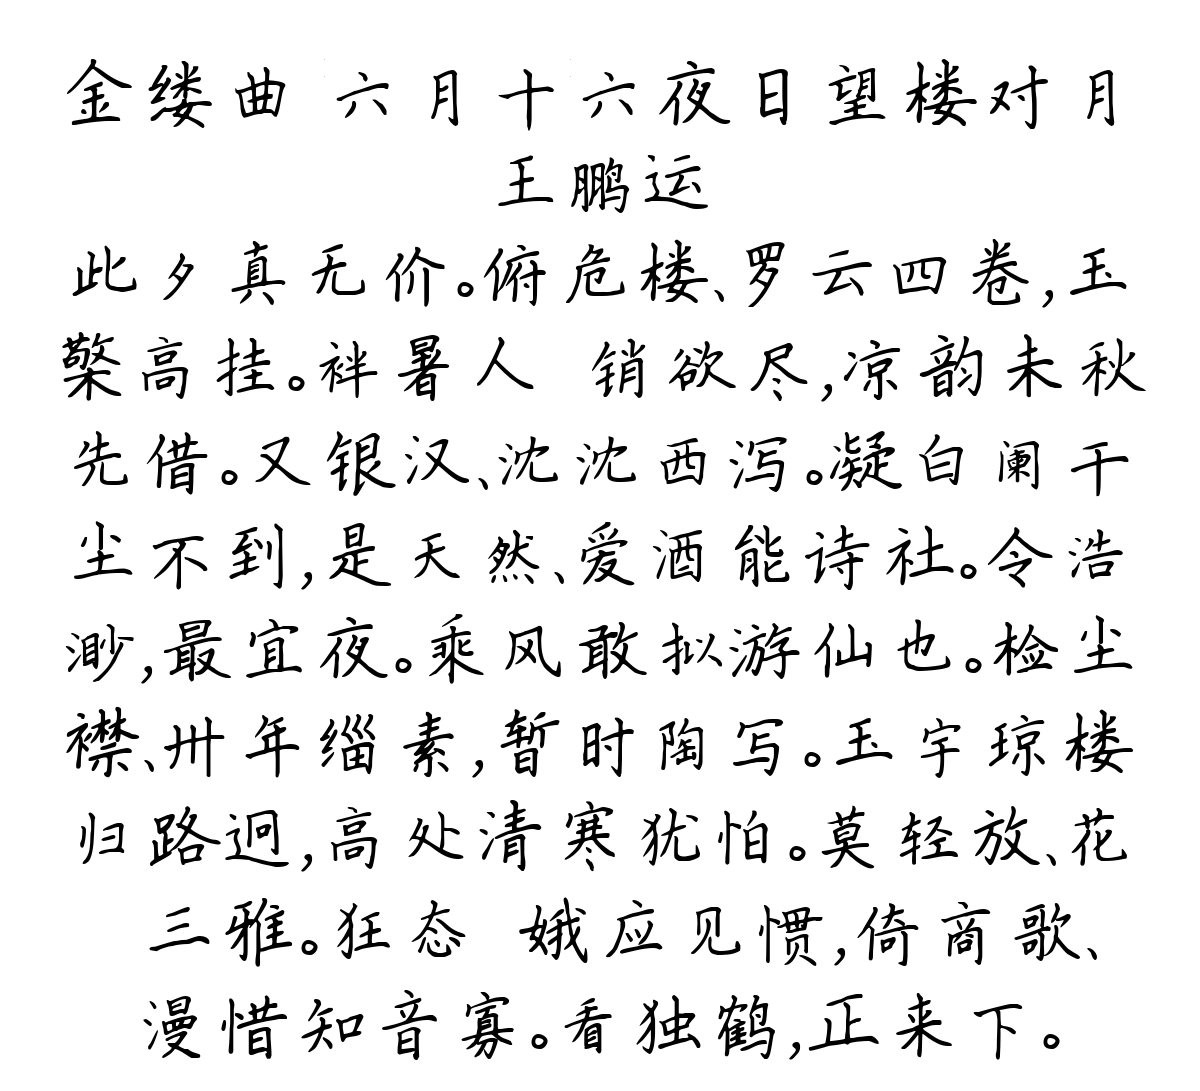 金缕曲 六月十六夜日望楼对月
王鹏运
此夕真无价。俯危楼、罗云四卷,玉
檠高挂。袢暑人 销欲尽,凉韵未秋
先借。又银汉、沈沈西泻。凝白阑干
尘不到,是天然、爱酒能诗社。令浩
渺,最宜夜。乘风敢拟游仙也。检尘
襟、卅年缁素,暂时陶写。玉宇琼楼
归路迥,高处清寒犹怕。莫轻放、花
三雅。狂态 娥应见惯,倚商歌、
漫惜知音寡。看独鹤,正来下。